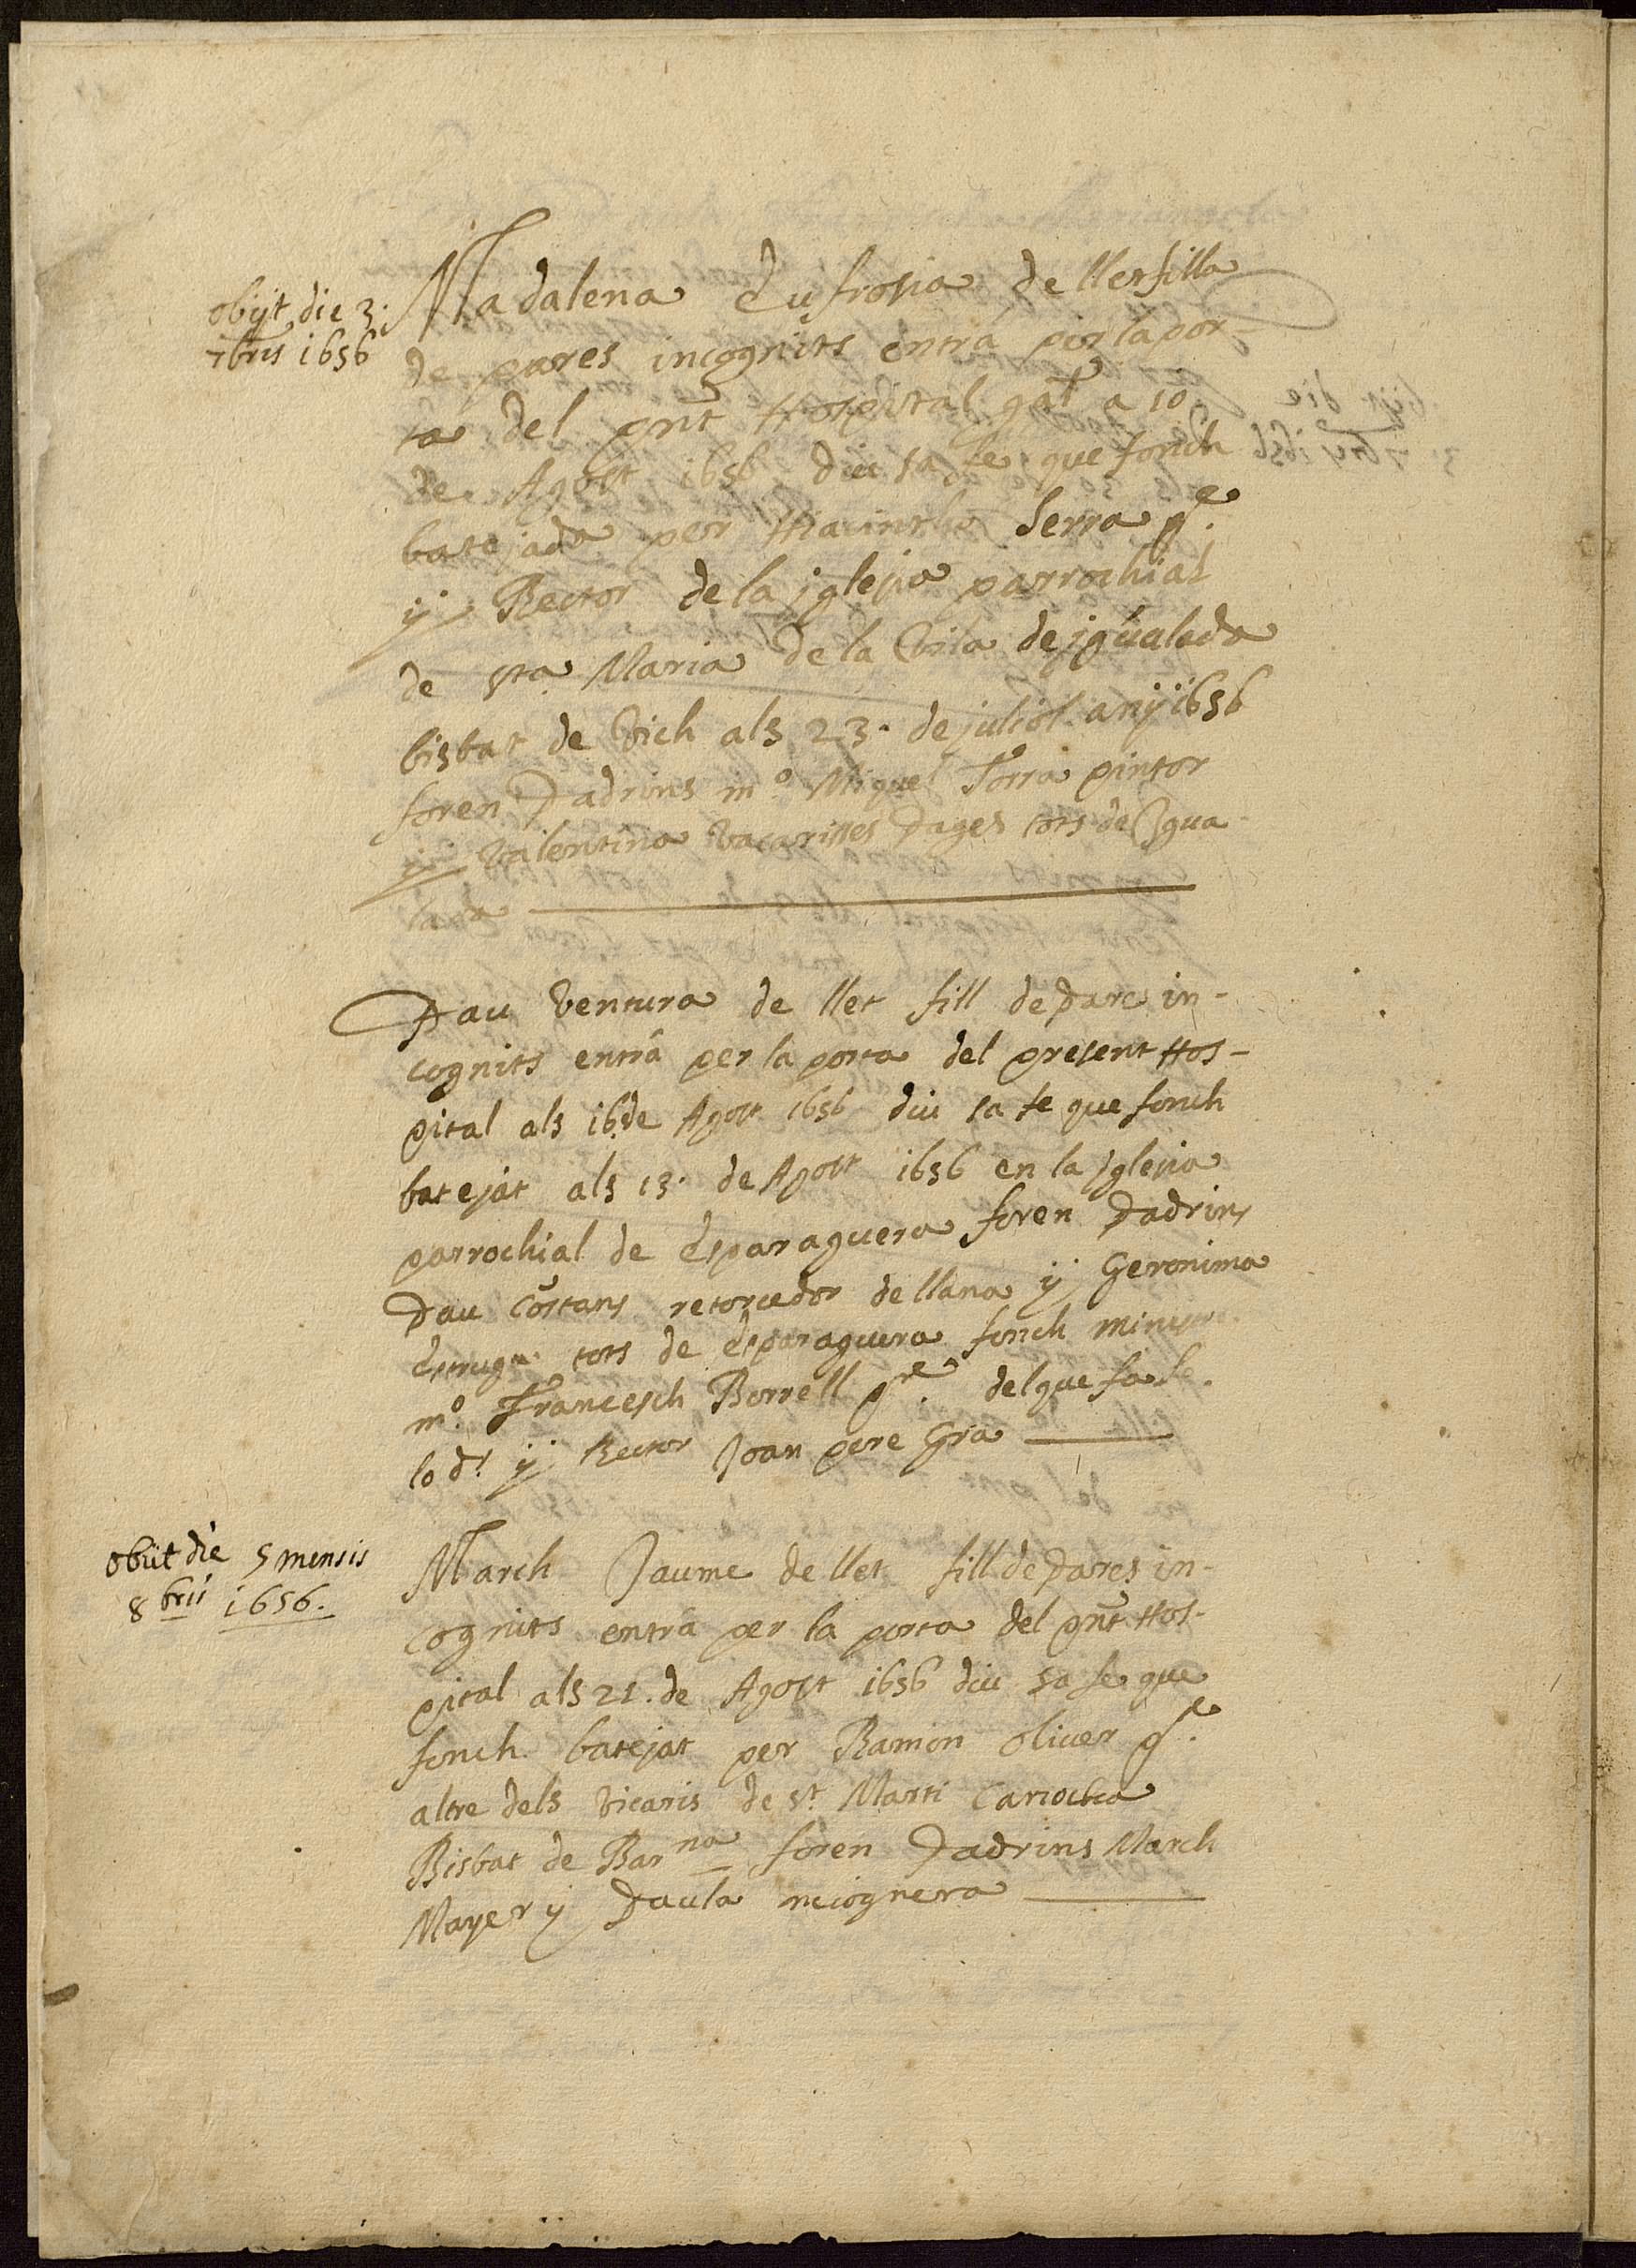 obijt die 3.
7bris 1656
Madalena Eufrosia de llet filla
de pares incognits entrá per la por-
ta del pnt Hospital gãl a 10
de Agost 1656 diu sa fe que fonch
batejada per Hiacintho Serra pre.
y Rector de la jglesia parrochial
de sta Maria de la Vila de jgualada
bisbat de Vich als 23. de juliol any 1656
foren Padrins mo Miquel Torra pintor
y Valentina Vacarisses Pages tots de Jgua
lada
Pau Ventura de llet fill de Pare in-
cognits entrá per la porta del present Hos-
pital als 16 de Agost 1656 diu sa fe que fonch
batejat als 13. de Agost 1656 en la Jglesia
parrochial de Esparaguera foren Padrins
Pau Costans retorcedor de llana y Geronima
tots de Esparaguera fonch
mo. Francesch Borrell pre. del que fa fe.
lo dt y Rector Joan pere Gra
obiit die 5 mensis
8bris 1656.
March Jaume de llet fill de Pares in-
cognits entrá per la porta del pnt Hos-
pital als 21. de Agost 1656 diu sa fe que
fonch batejat per Ramon Oliver pre.
altre dels Vicaris de St Marti
Bisbat de Barna foren Padrins March
Mayer y Paula